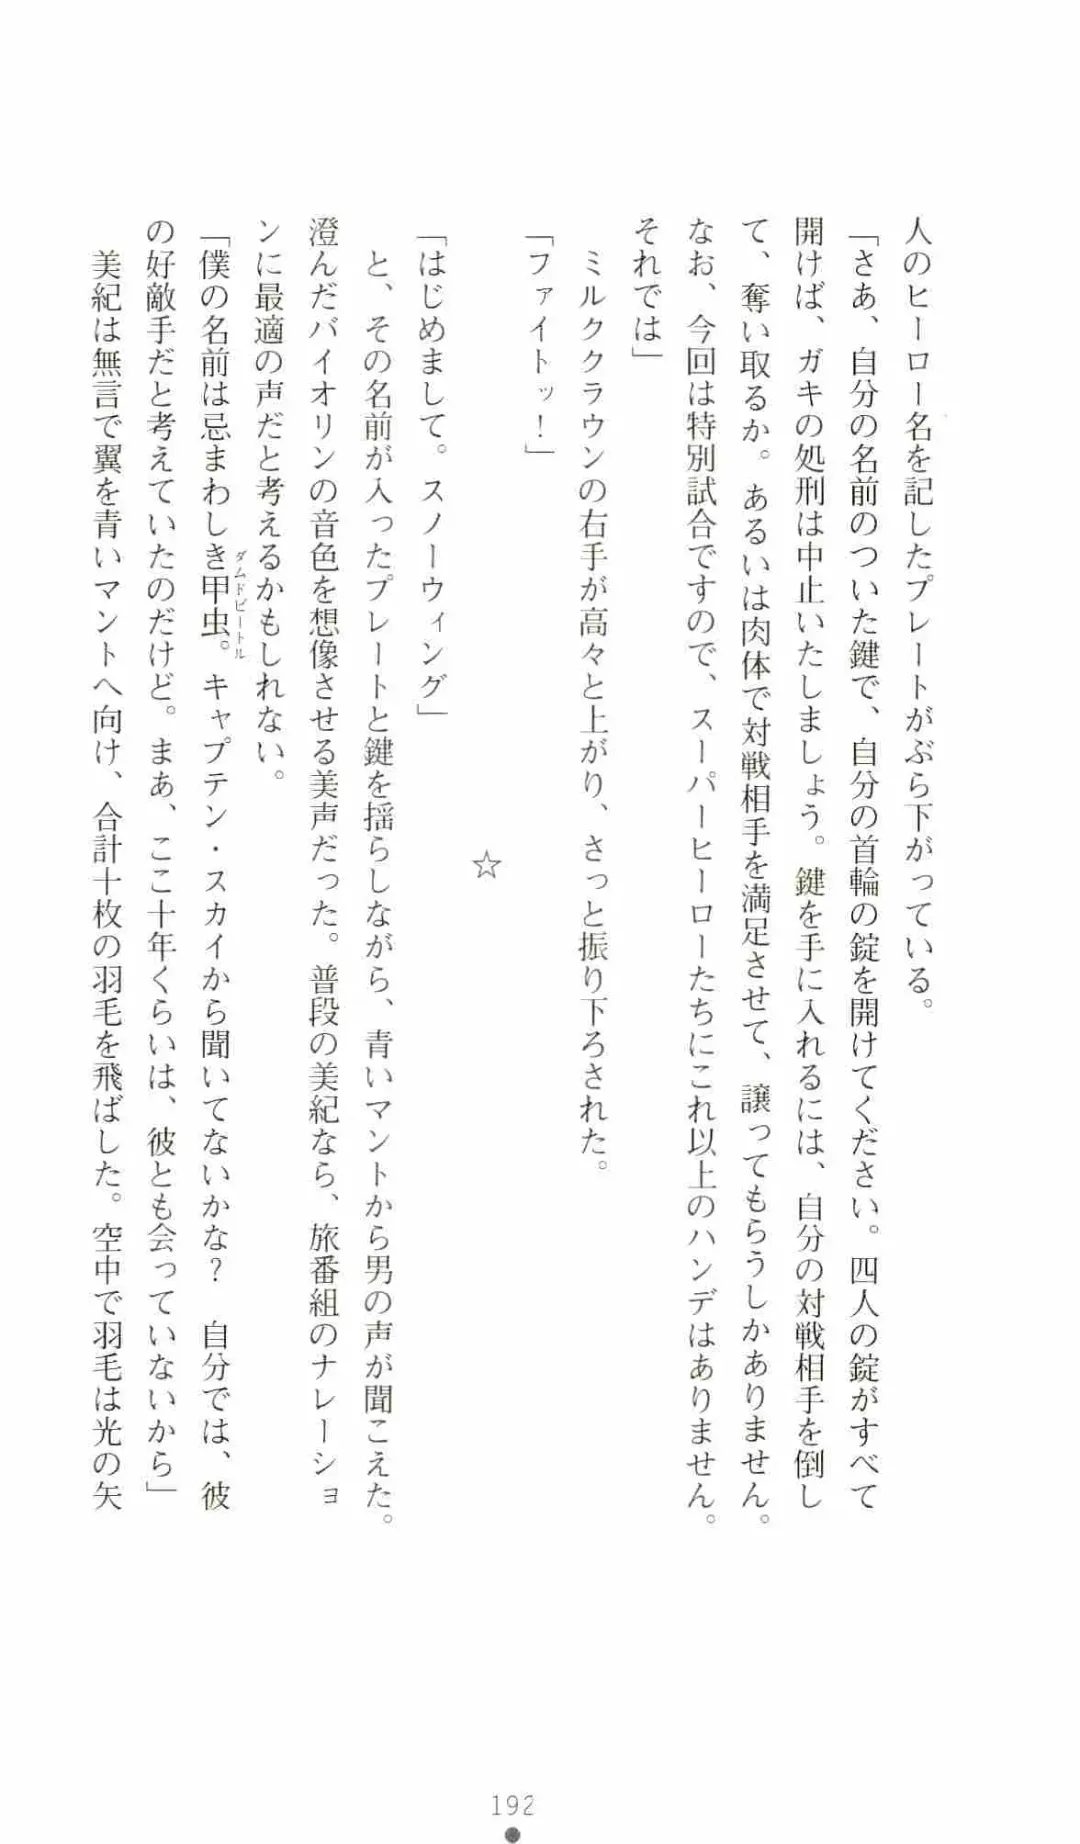 人のヒーロー名を記したプレートがぶら下がっている。
「さあ、自分の名前のついた鍵で、自分の首輪の錠を開けてください。四人の錠がすべて
開けば、ガキの処刑は中止いたしましょう。鍵を手に入れるには、自分の対戦相手を倒し
て、奪い取るか。あるいは肉体で対戦相手を満足させて、譲ってもらうしかありません。
なお、今回は特別試合ですので、スーパーヒーローたちにこれ以上のハンデはありません。
それでは」
ミルククラウンの右手が高々と上がり、さっと振り下ろされた。
「ファイトッ！」
☆
「はじめまして。スノーウィング」
と、その名前が入ったプレートと鍵を揺らしながら、青いマントから男の声が聞こえた。
澄んだバイオリンの音色を想像させる美声だった。普段の美紀なら、旅番組のナレーショ
ンに最適の声だと考えるかもしれない。
ダムドビートル
「僕の名前は忌まわしき甲虫。キャプテン・スカイから聞いてないかな？　自分では、彼
の好敵手だと考えていたのだけど。まあ、ここ十年くらいは、彼とも会っていないから」
美紀は無言で翼を青いマントへ向け、合計十枚の羽毛を飛ばした。空中で羽毛は光の矢
192